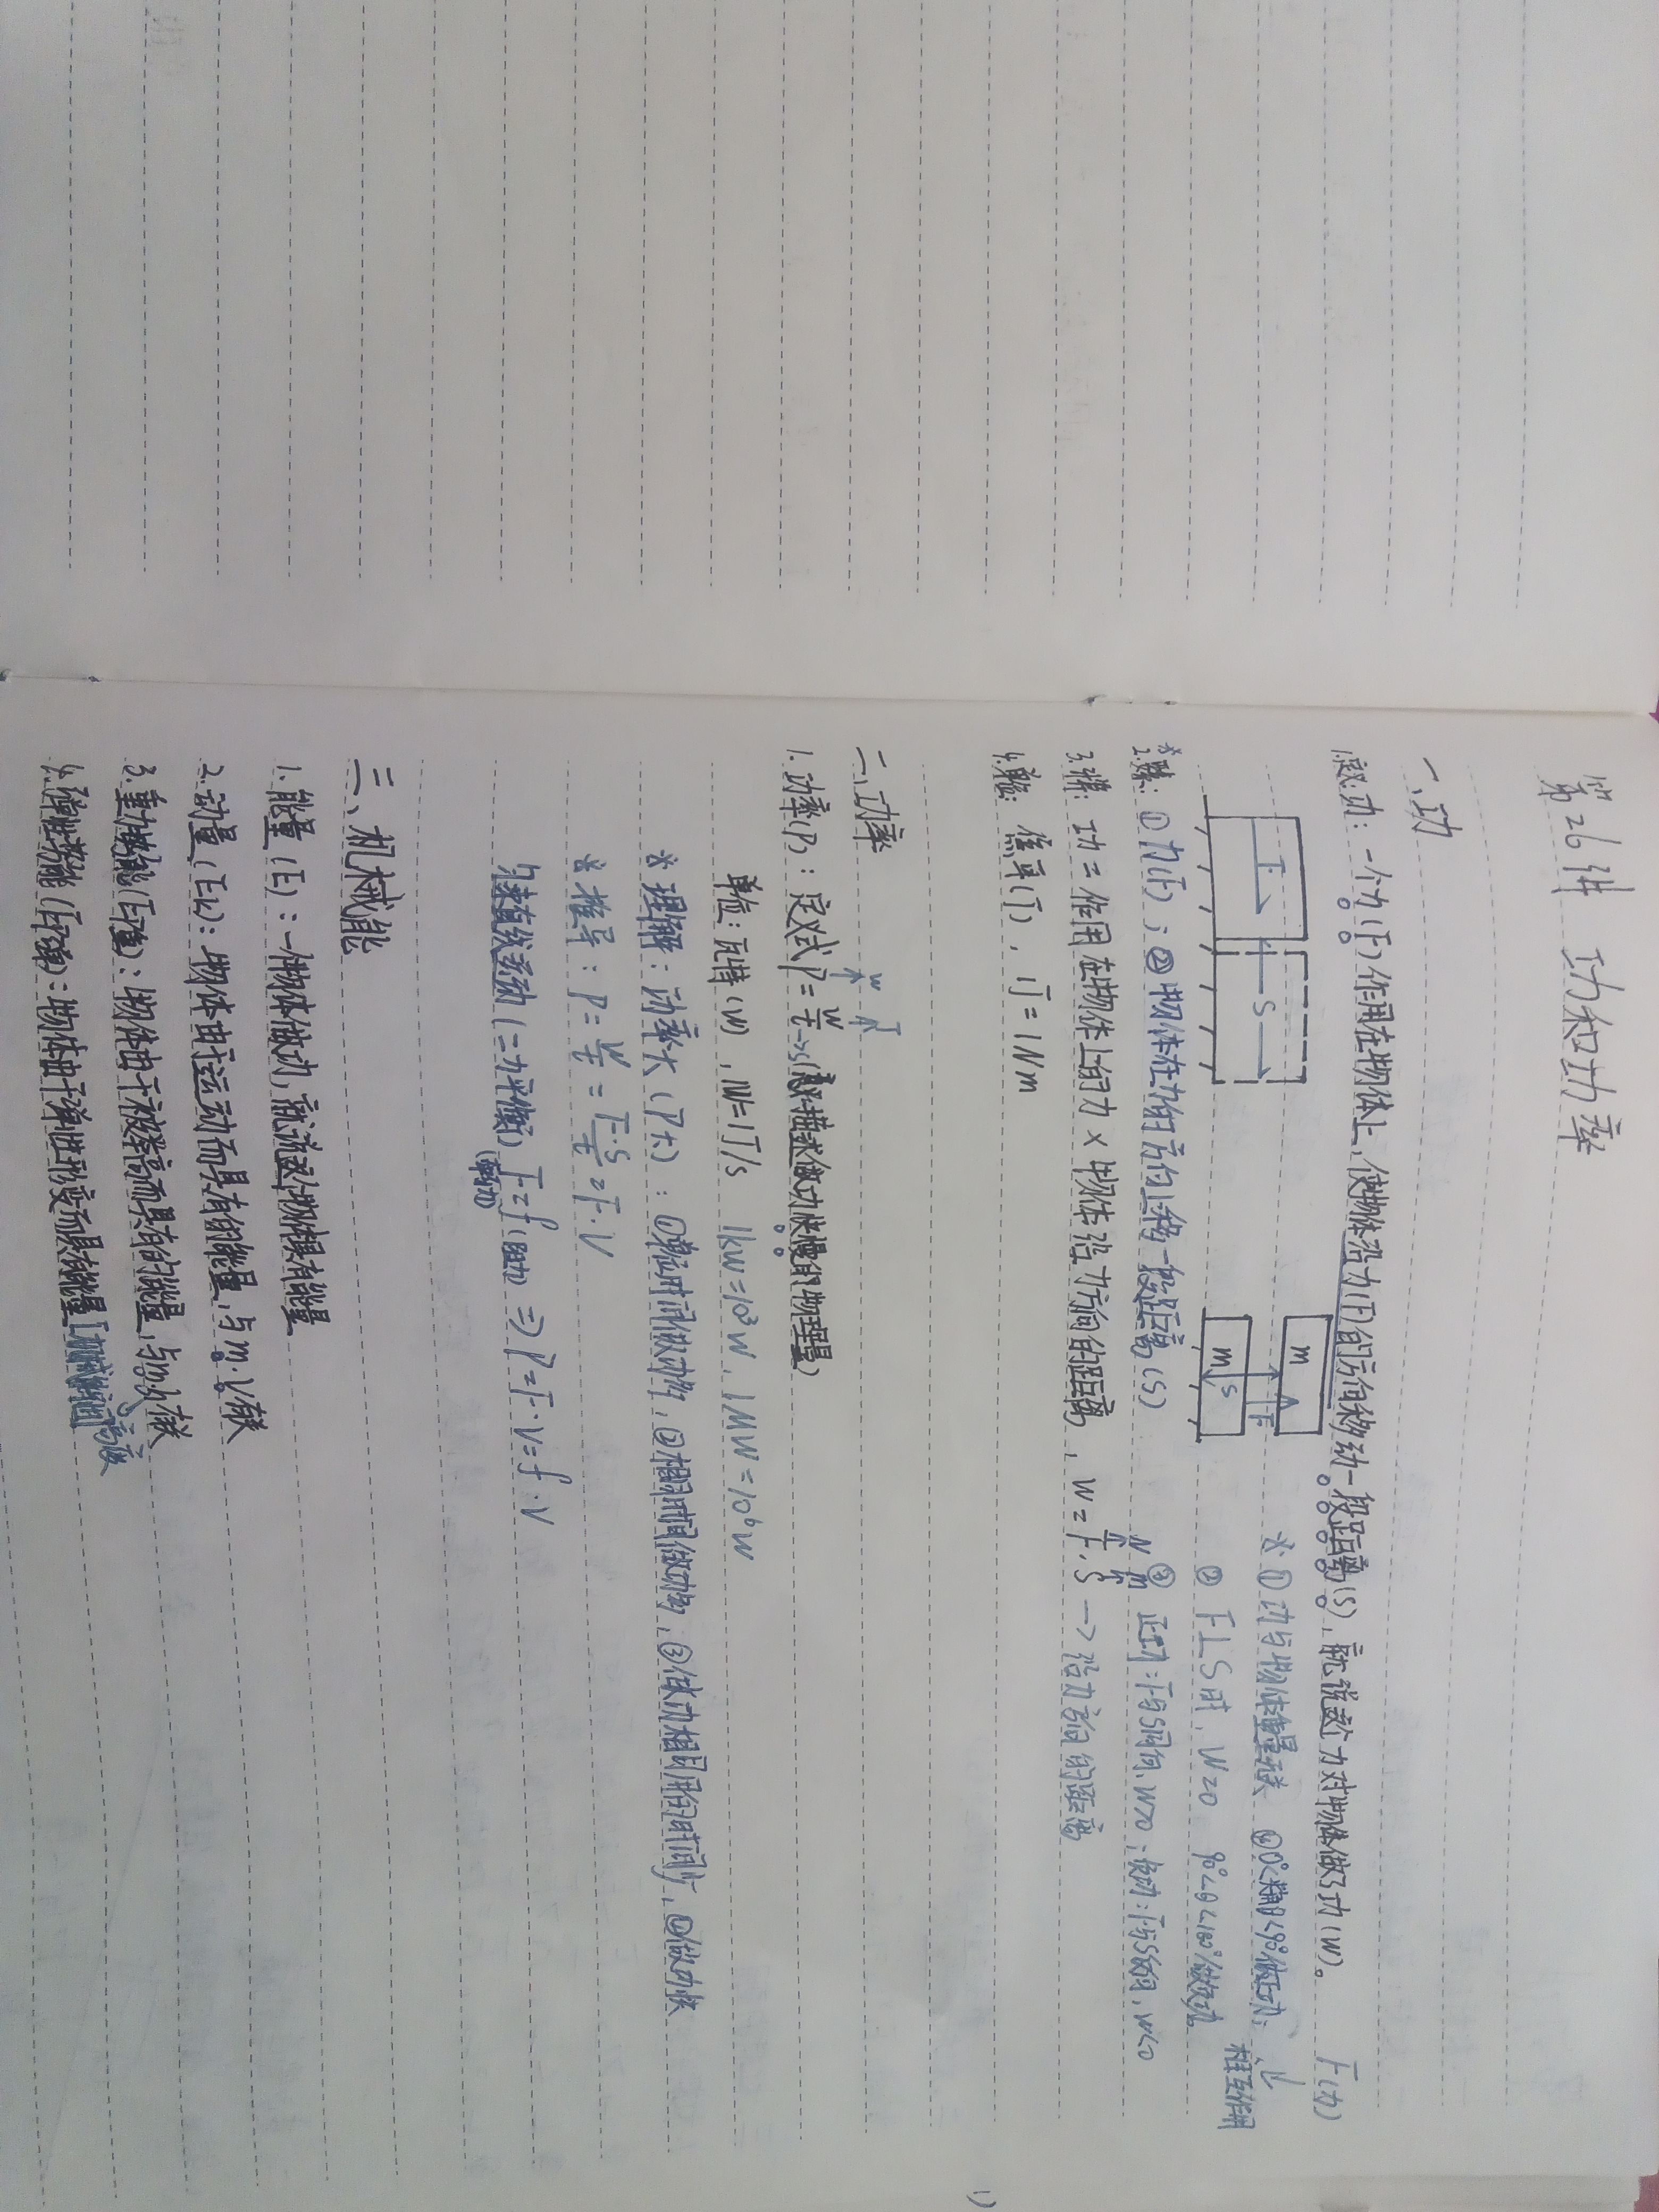 第26讲 功和功率
一、功
1.定义:功:一个力(F)作用在物体上,使物体沿力(F)的方向移动一段距离(S),就说这个力对物体做了功(W)。
F(力)
相互作用
F S m m S F
※①功与物体重量无关 ②0°<夹角θ<90°做正功;
② F⊥S时,W=0 90°<θ<180°做负功
③正功:F与S同向,W>0;负功:F与S反向,W<0
*2.要素:①力(F);②物体在力的方向上移动一段距离(S)
3.计算:功=作用在物体上的力×物体沿力方向的距离,W=F·S→沿力方向的距离
N m
4.单位:焦耳(J),1J=1Nm
二、功率
W J
1.功率(P):定义式P=W/t→s(意义:描述做功快慢的物理量)
单位:瓦特(W),1W=1J/s 1kW=10³W,1MW=10⁶W
※理解:功率大(P大):①单位时间做功多,②相同时间做功多,③做功相同用的时间少,④做功快
※推导:P=W/t=F·S/t=F·V
匀速直线运动(二力平衡)F=f(阻力)⇒P=F·V=f·V
(牵引力)
三、机械能
1.能量(E):一个物体能做功,就说这个物体具有能量
2.动量(Ek):物体由于运动而具有的能量,与m、V有关
3.重力势能(Ep重):物体由于被举高而具有的能量,与m、h有关
高度
4.弹性势能(Ep弹):物体由于弹性形变而具有的能量